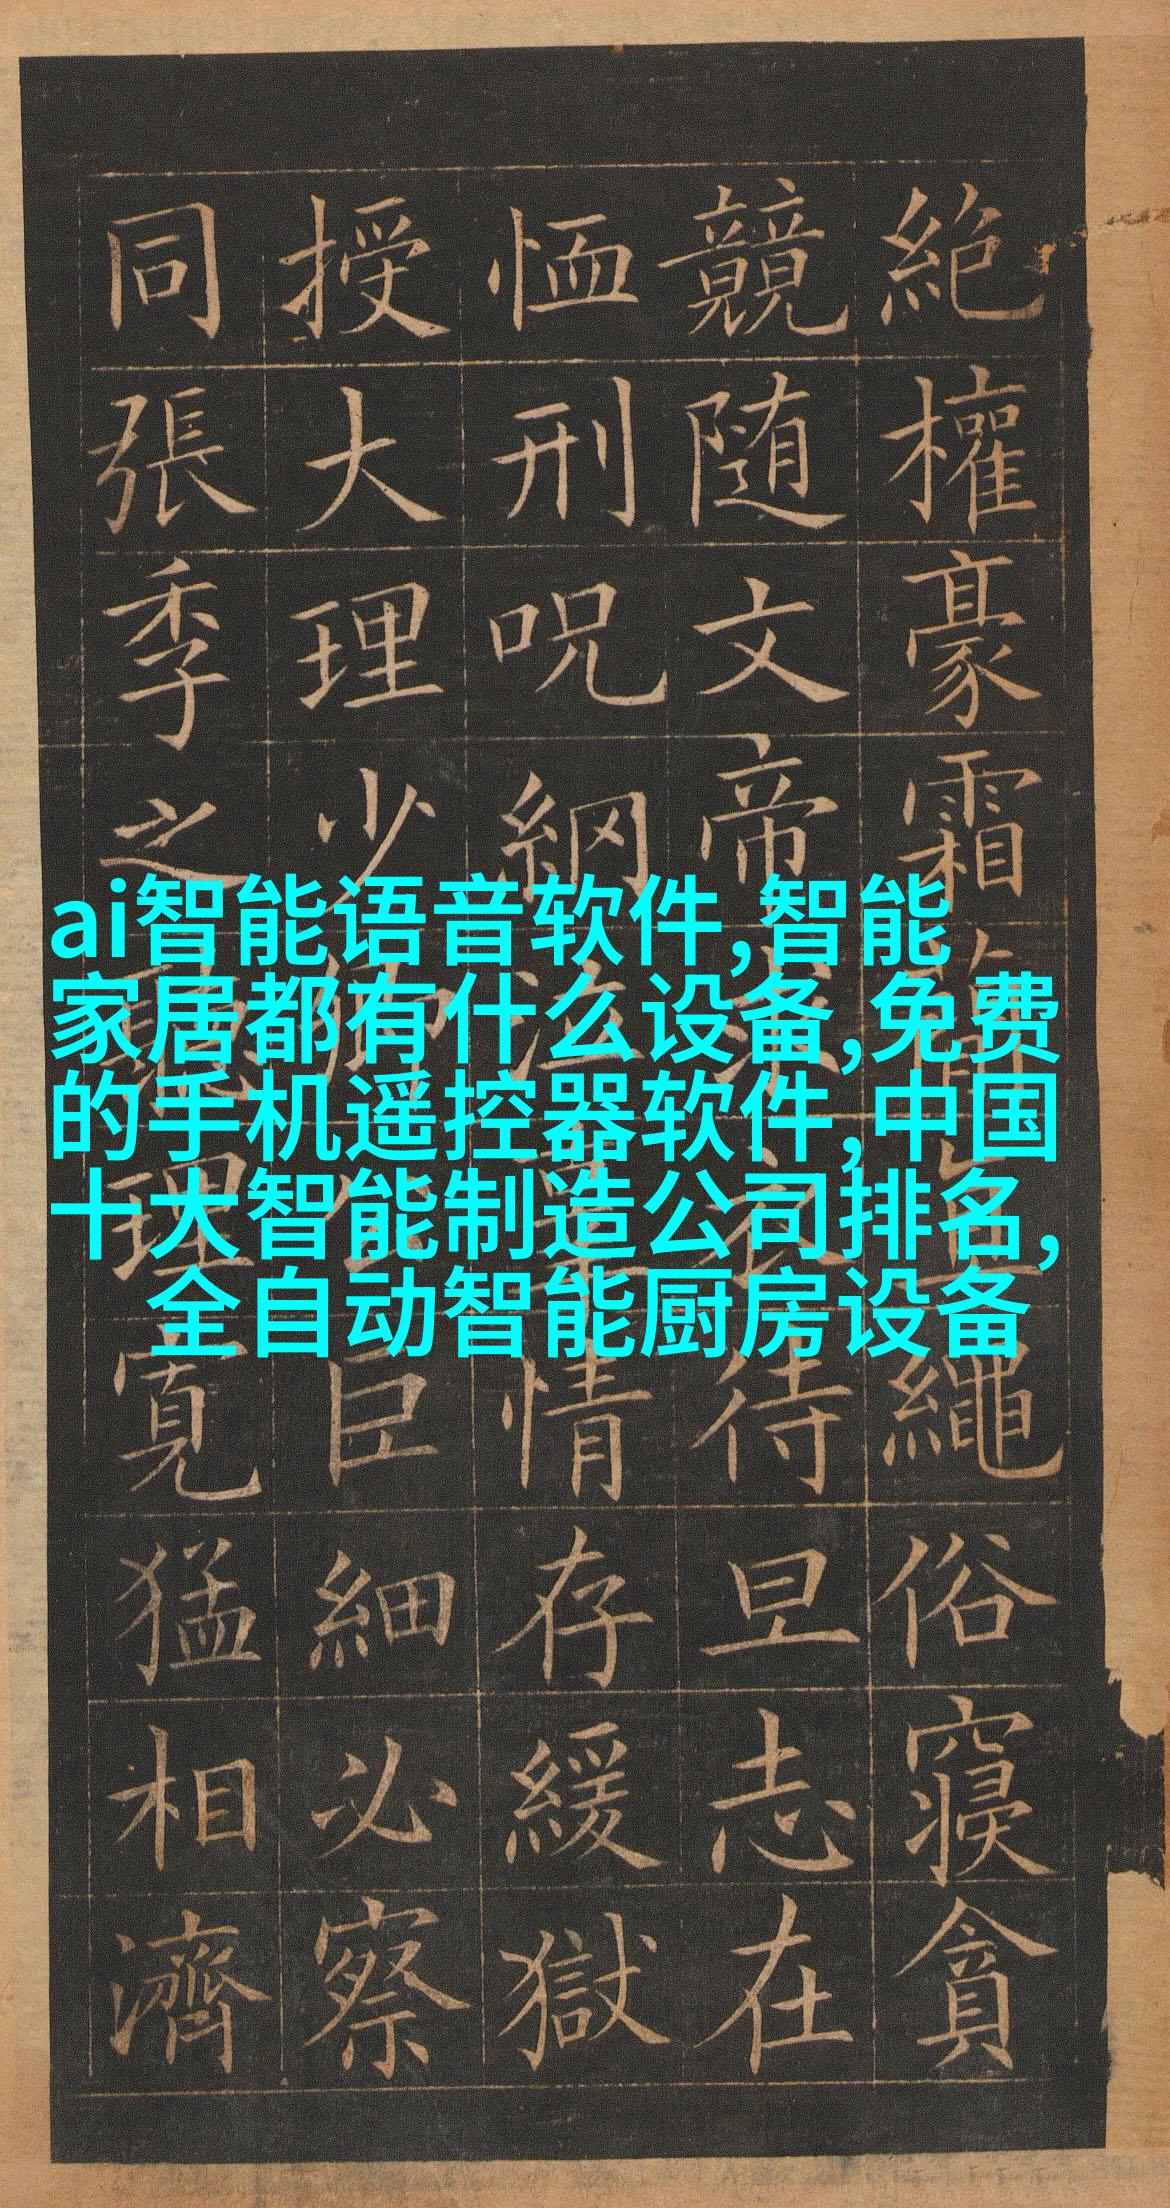 ai智能语音软件,智能
家居都有什么设备,免费
的手机遥控器软件,中国
十大智能制造公司排名,
全自动智能厨房设备
絶權豪霜簡繩俗寢貪
競随文帝求衣待旦志在
恤刑呪網泣辜情存緩獄
授大理少卿公巨細必察
同張季之聽理寛猛相濟